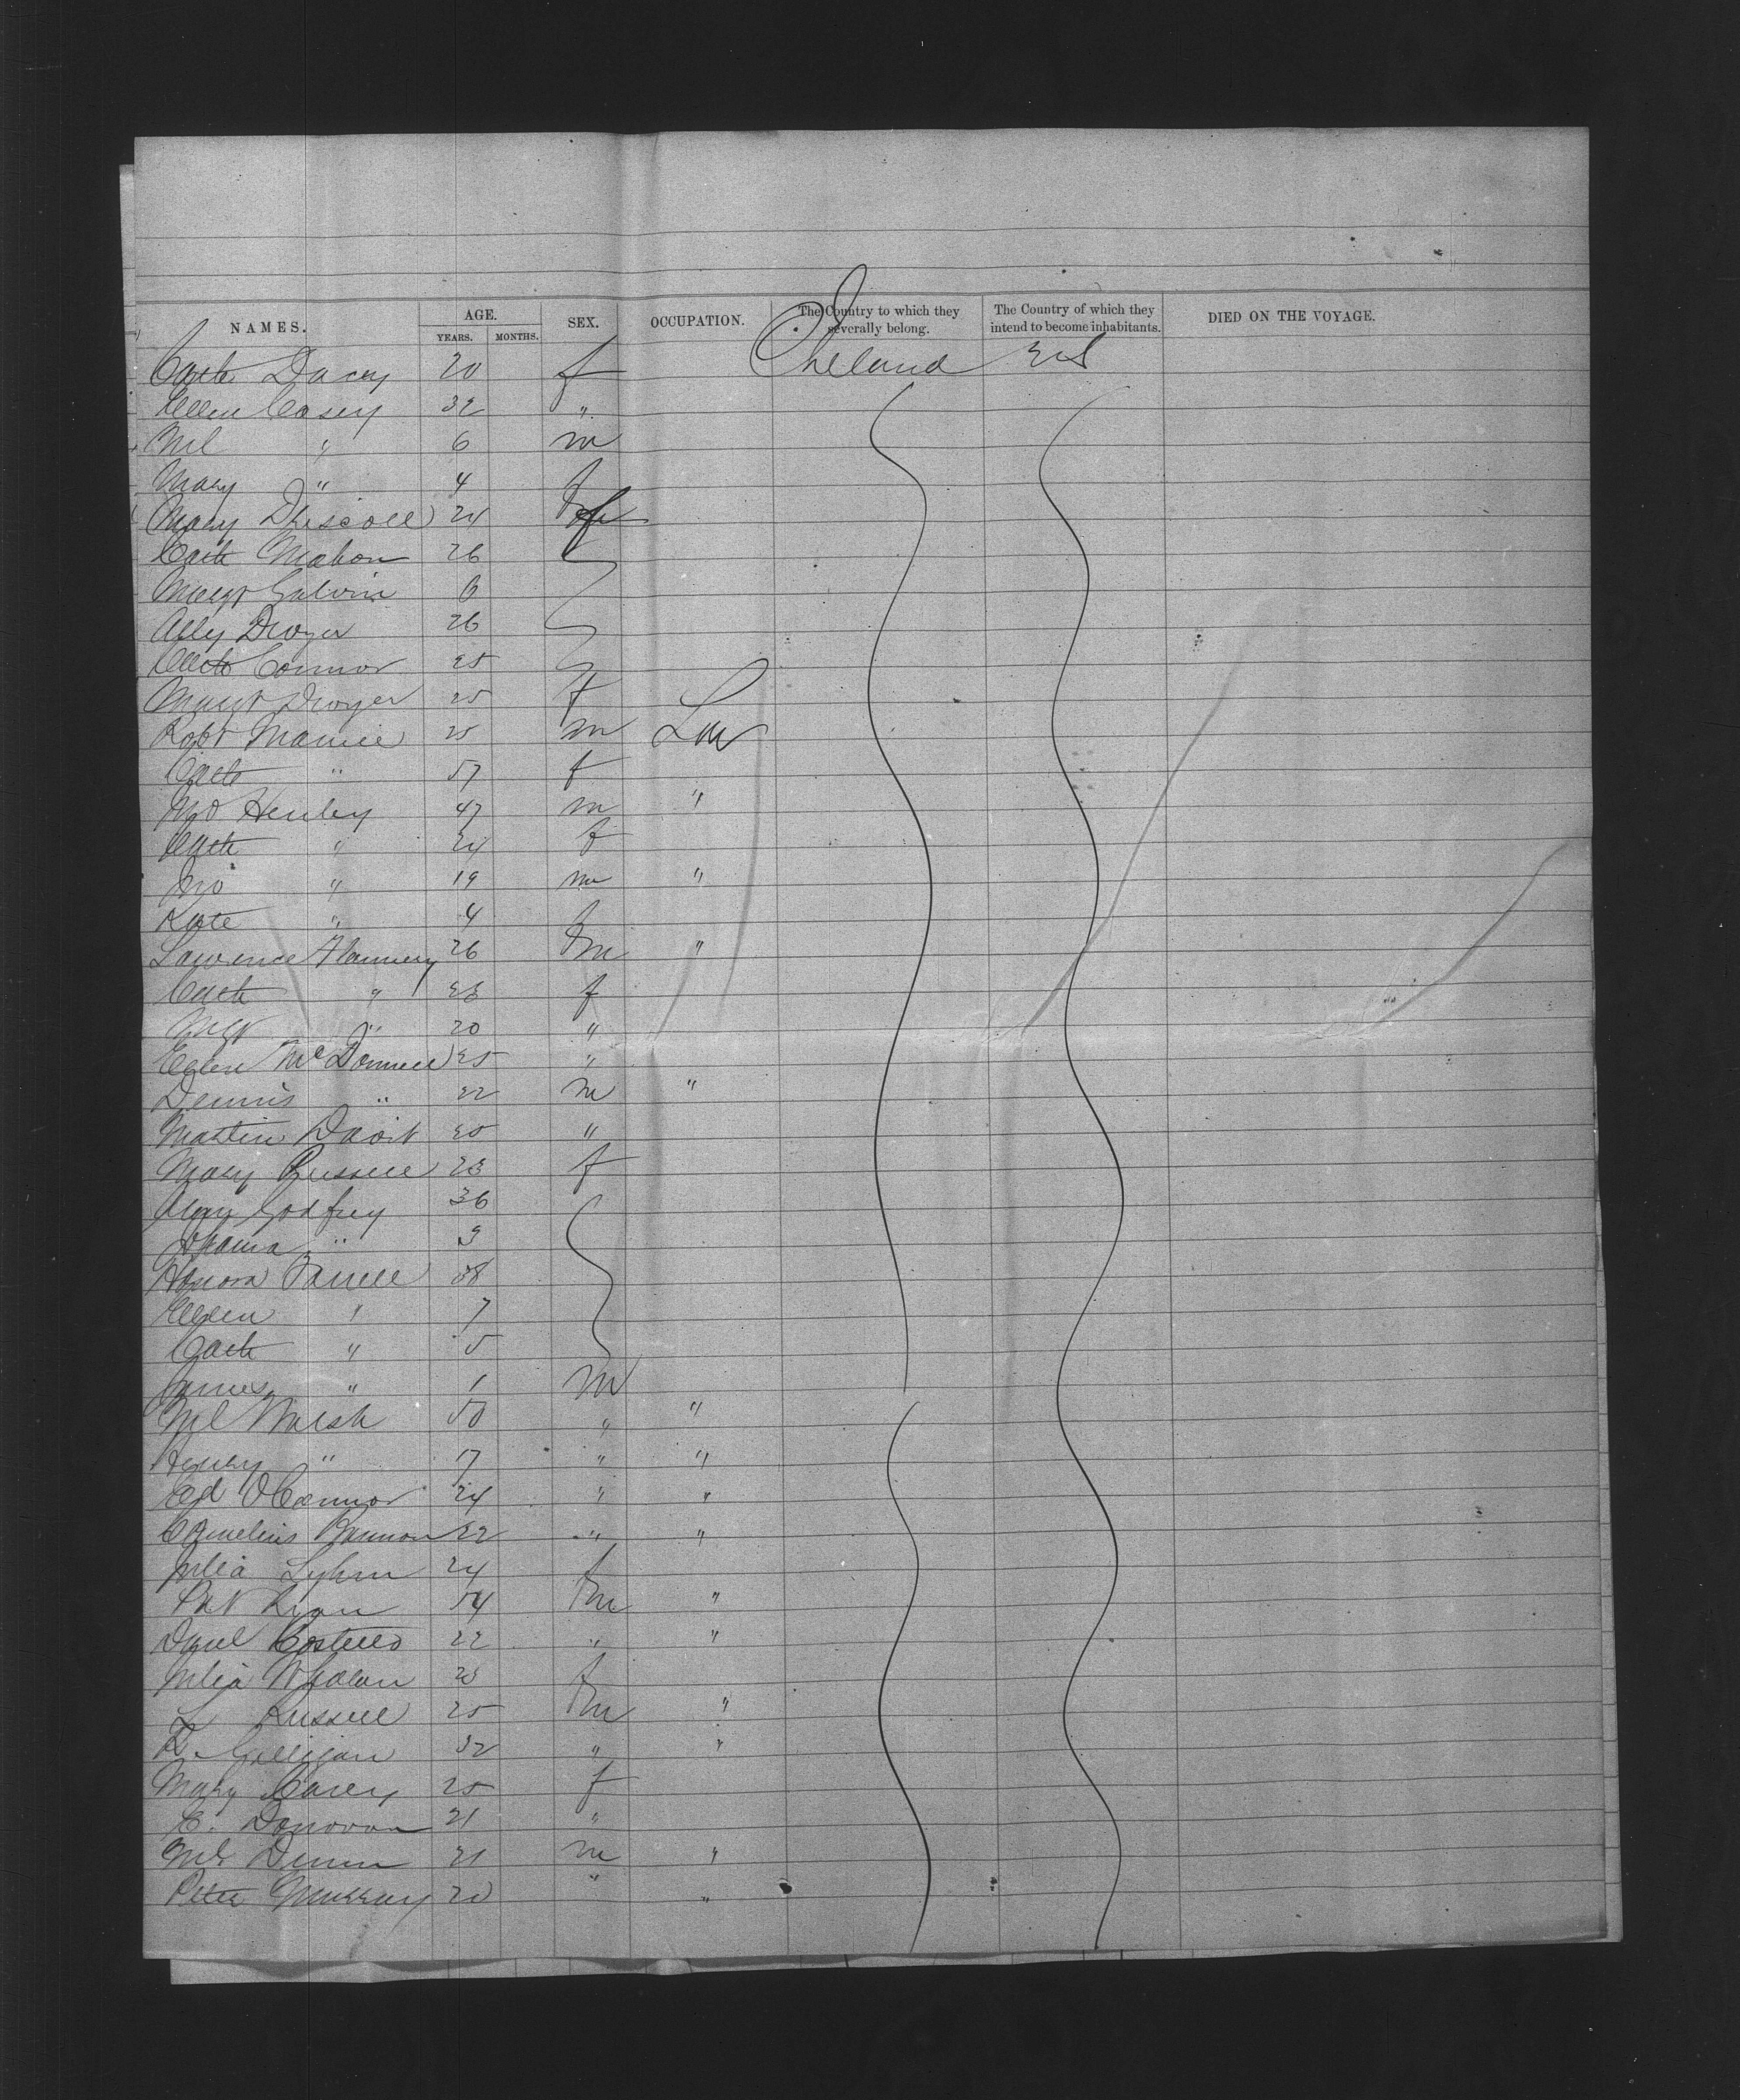 NAMES. AGE. SEX. OCCUPATION. The Country to which they severally belong. The Country of which they intend to become inhabitants. DIED ON THE VOYAGE.
YEARS. MONTHS.
Cath Dacey 20 f Ireland U S
Ellen Casey 32 "
Ml " 6 m
Mary " 4 f
Mary Driscoll 24 f
Cath Mahon 26
Margt Galvin 6
Abby Dwyer 26
Cath Connor 25
Margt Dwyer 25 f
Robt 25 m Lab
Cath " 57 f
Henley 47 m "
Cath " 24 f
Jno " 19 m "
Kate " 4 f
Lawrence Flannery 26 m "
Cath " 23 f
Mgt " 20 "
Ellen McDonnell 25 "
Dennis " 22 m "
Martin Davit 25 "
Mary Russell 23 f
Mary Godfrey 36
" 3
Honora Farrell 38
Ellen " 7
Cath " 5
James " 1 m
Ml Walsh 50 " "
Henry " 17 " "
Ed O'Connor 24 " "
Cornelius Bannon 22 " "
Julia 24 f
Pat Ryan 54 m "
Danl Costello 22 " "
Julia Whalan f
L Russell 25 m "
Gilligan 32 " "
Mary Carey 25 f
C. Donovan 21 "
Ml. Dunn 21 m "
Peter Murray 20 " "